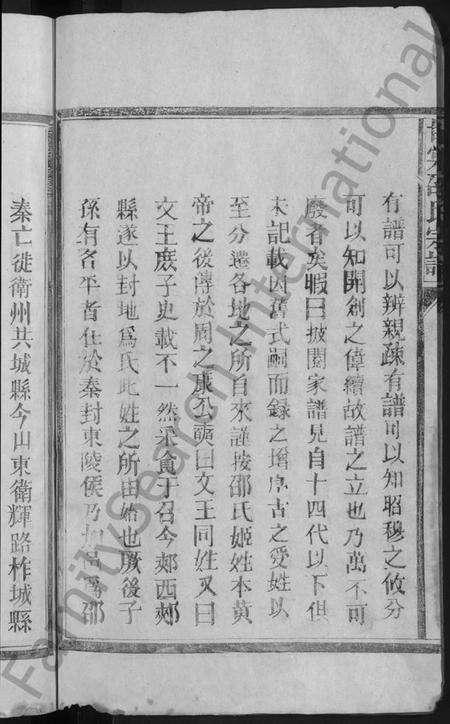 有譜可以辨親疎有譜可以知昭穆之攸分
可以知開創之偉績故譜之立也乃萬不可
廢者矣暇曰披閱家譜見自十四代以下但
未記載因舊式嗣而録之增序古之受姓以
至分遷各地之所自來謹按邵氏姬姓本黃
帝之後傳於周之康公奭曰文王同姓又曰
文王庶子史載不一然采食于召今郊西郟
縣遂以封地為氏此姓之所由始也厥後子
孫有名平者仕於秦封東陵侯乃加邑為邵
秦亡徙衛州共城縣今山東衛輝路柞城縣
邵氏宗譜
FamilySearch International